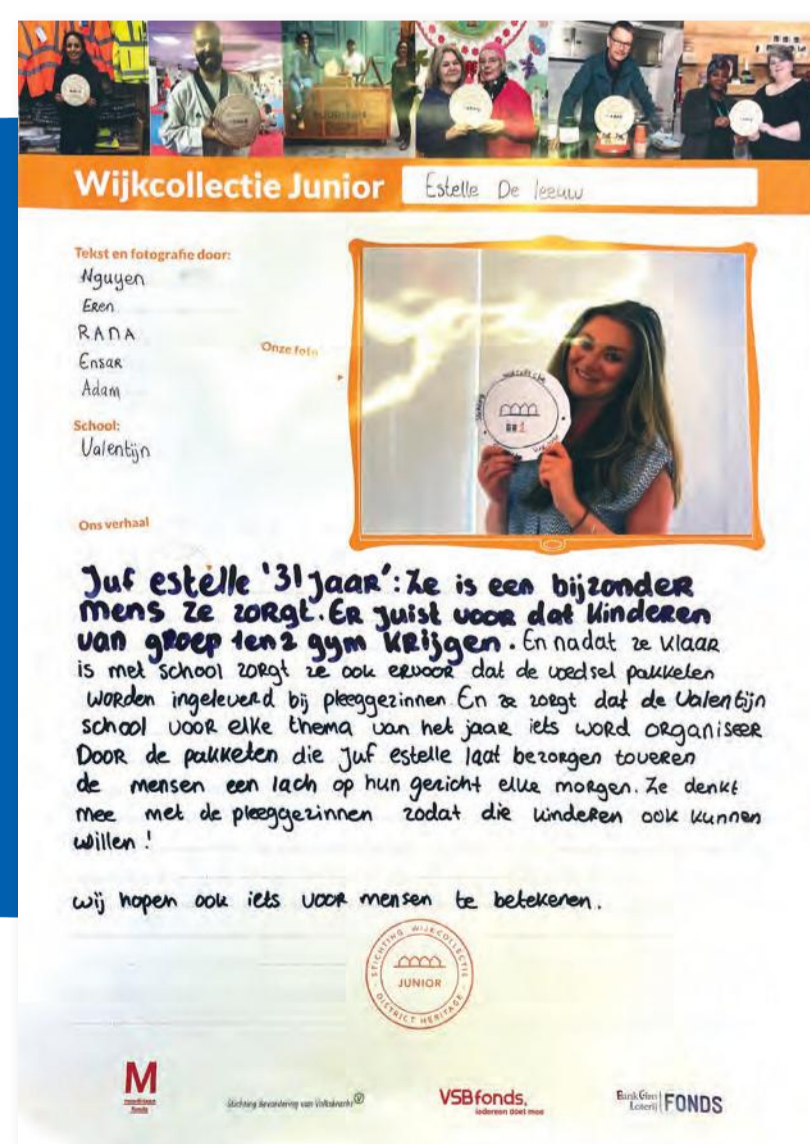 Wijkcollectie Junior
Estelle De leeuw
Tekst en fotografie door:
Nguyen
Eren
RANA
Ensar
Adam
School:
Valentijn
Onze foto
Ons verhaal
Juf estelle '31 jaar': Ze is een bijzonder
mens ze zorgt. Er juist voor dat kinderen
van groep 1 en 2 gym krijgen. En nadat ze klaar
is met school zorgt ze ook ervoor dat de voedsel pakketen
worden ingeleverd bij pleeggezinnen En ze zorgt dat de Valentijn
school voor elke thema van het jaar iets word organiseer
Door de pakketen die Juf estelle laat bezorgen toveren
de mensen een lach op hun gezicht elke morgen. Ze denkt
mee met de pleeggezinnen zodat die kinderen ook kunnen
willen!
wij hopen ook iets voor mensen te betekenen.
STICHTING WIJKCOLLECTIE
JUNIOR
DISTRICT HERITAGE
M
fonds
Stichting Bevordering van Volkskracht
VSBfonds,
iedereen doet mee
BankGiro
Loterij FONDS